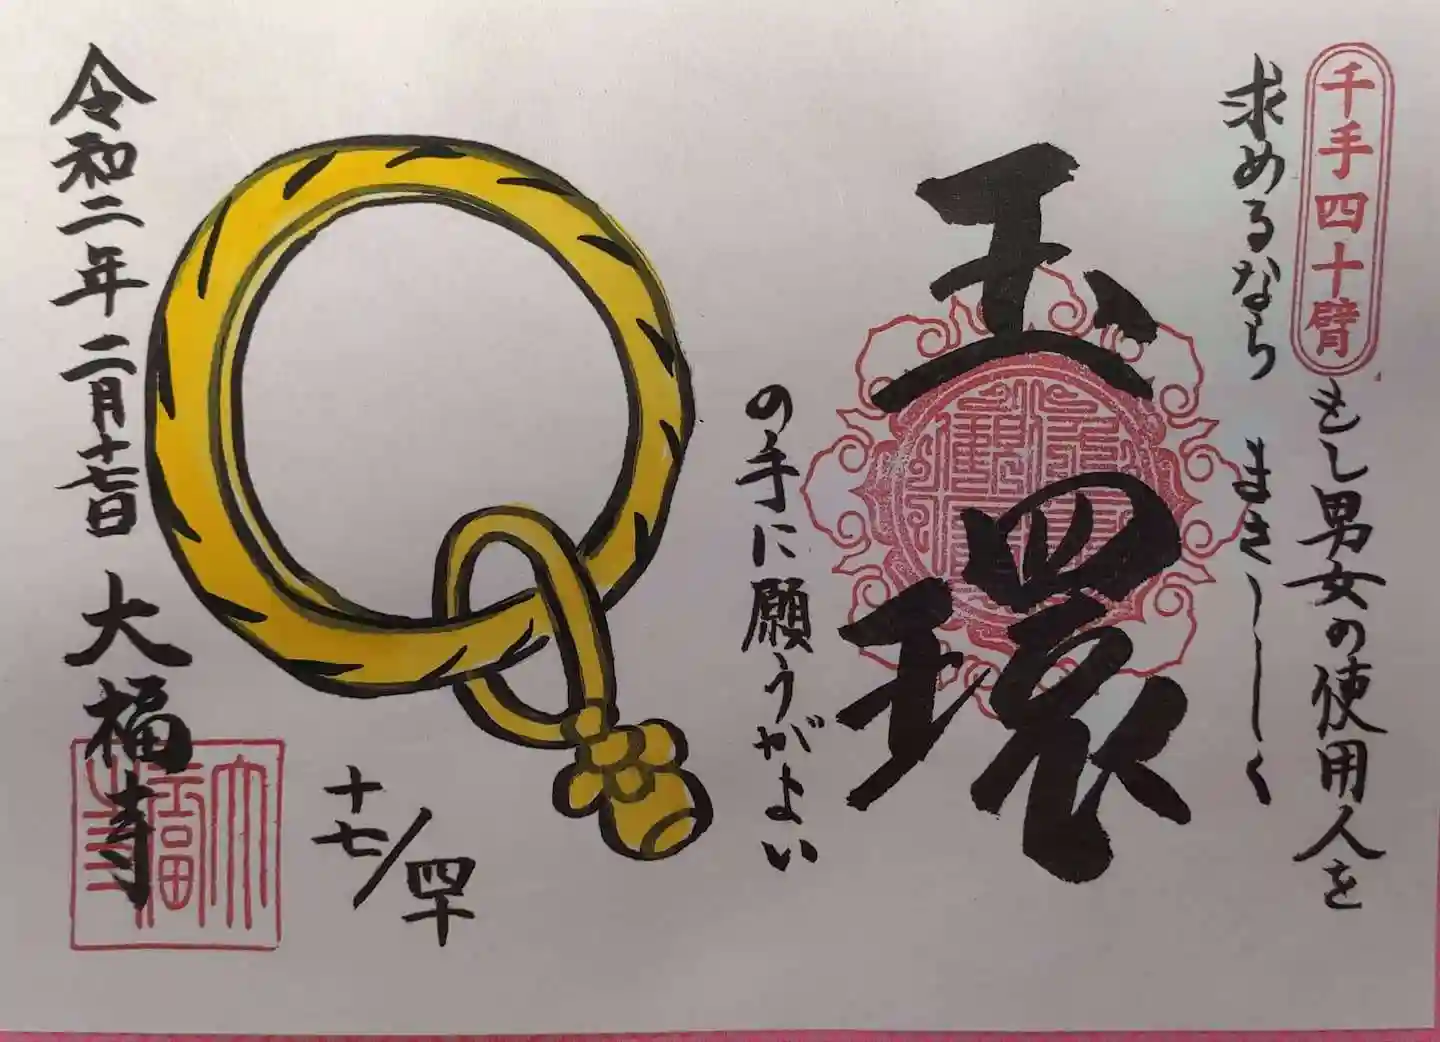 千手四十臂
もし男女の使用人を
求めるなら
まさししく
玉環
の手に願うがよい
十七/四十
令和二年二月十七日
大福寺
大福寺